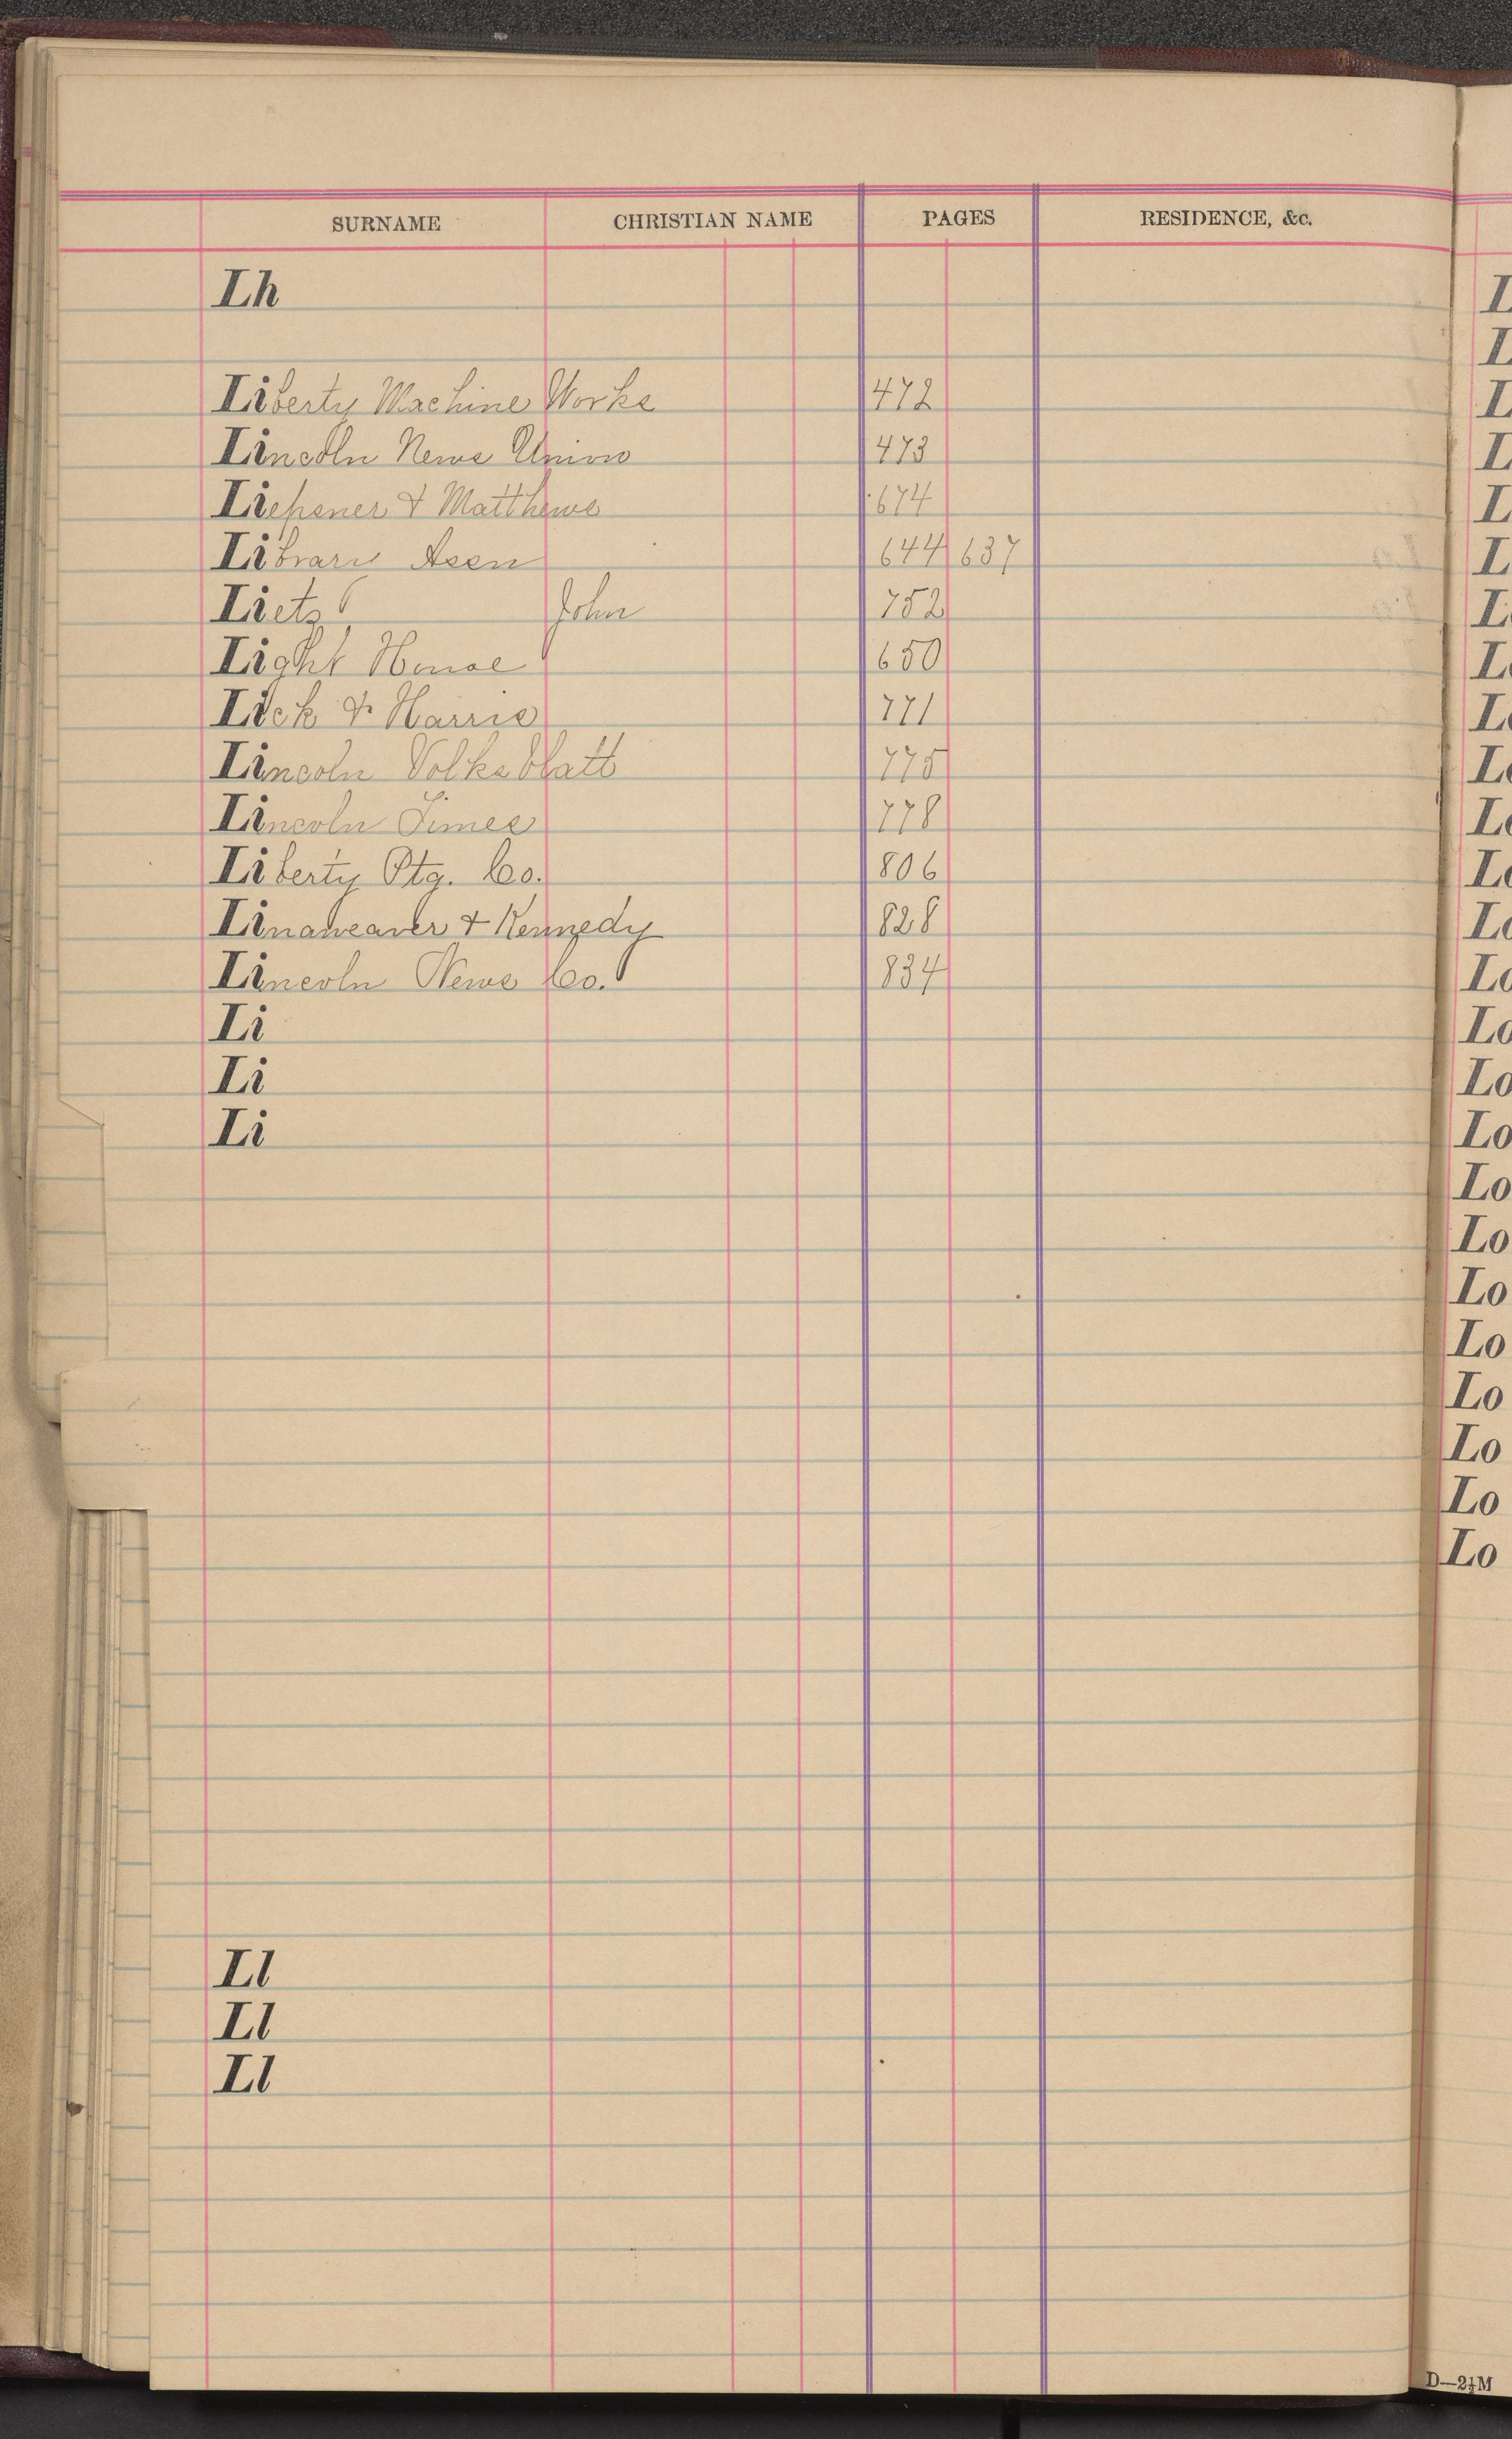 SURNAME CHRISTIAN NAME PAGES RESIDENCE, &c.
Lh
Liberty Machine Works 472
Lincoln News Union 473
Liepsner & Matthews 674
Library Assn 644 637
Lietz John 752
Light House 650
Lick & Harris 771
Lincoln Volksblatt 775
Lincoln Times 778
Liberty Ptg. Co. 806
Linaweaver & Kennedy 828
Lincoln News Co. 834
Li
Li
Li
Ll
Ll
Ll
L
L
L
L
L
L
L
L
L
L
L
L
Lo
Lo
Lo
Lo
Lo
Lo
Lo
Lo
Lo
Lo
Lo
Lo
Lo
D—2½M